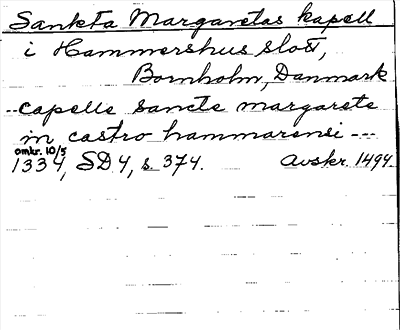 Sankta Margaretas kapell
i Hammershus slott,
Bornholm, Danmark
--capelle sancte margarete
in castro hammarensi ---
omkr. 10/5
1334, SD4, s. 374. Avskr. 1494